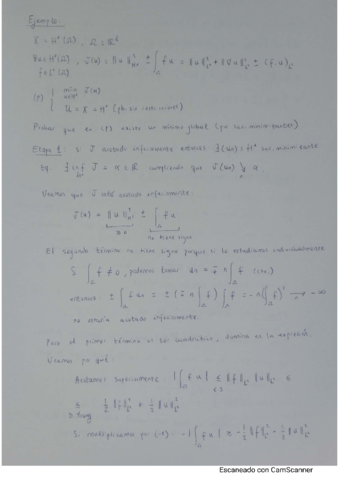 Ejemplo:
X = H¹(Ω), Ω ⊂ ℝᵈ
u ∈ H¹(Ω), J(u) = ‖u‖²_{H¹} ± ∫_Ω f u = ‖u‖²_{L²} + ‖∇u‖²_{L²} ± (f,u)_{L²}
f ∈ L²(Ω)
(P) { min J(u)
U = X = H¹ (pb sin restricciones)
Probar que en (P) existe un mínimo global
Etapa 1: Si J acotado inferiormente entonces ∃(uₙ) ⊂ H¹ suc. minimizante
inf J = α ∈ ℝ cumpliendo que J(uₙ) ↘ α
Veamos que J está acotado inferiormente:
J(u) = ‖u‖²_{H¹} ± ∫_Ω f u
≥ 0 no tiene signo
El segundo término no tiene signo porque si lo estudiamos individualmente
Si ∫_Ω f ≠ 0, podemos tomar
entonces
no estaría acotado inferiormente.
Pero el primer término al ser cuadrático, domina en la expresión.
Veamos por qué:
Acotamos superiormente |∫_Ω f u| ≤ ‖f‖_{L²} ‖u‖_{L²} ≤
≤ ½ ‖f‖²_{L²} + ½ ‖u‖²_{L²}
Si multiplicamos por (-1): -|∫_Ω f u| ≥ -½ ‖f‖²_{L²} - ½ ‖u‖²_{L²}
Escaneado con CamScanner